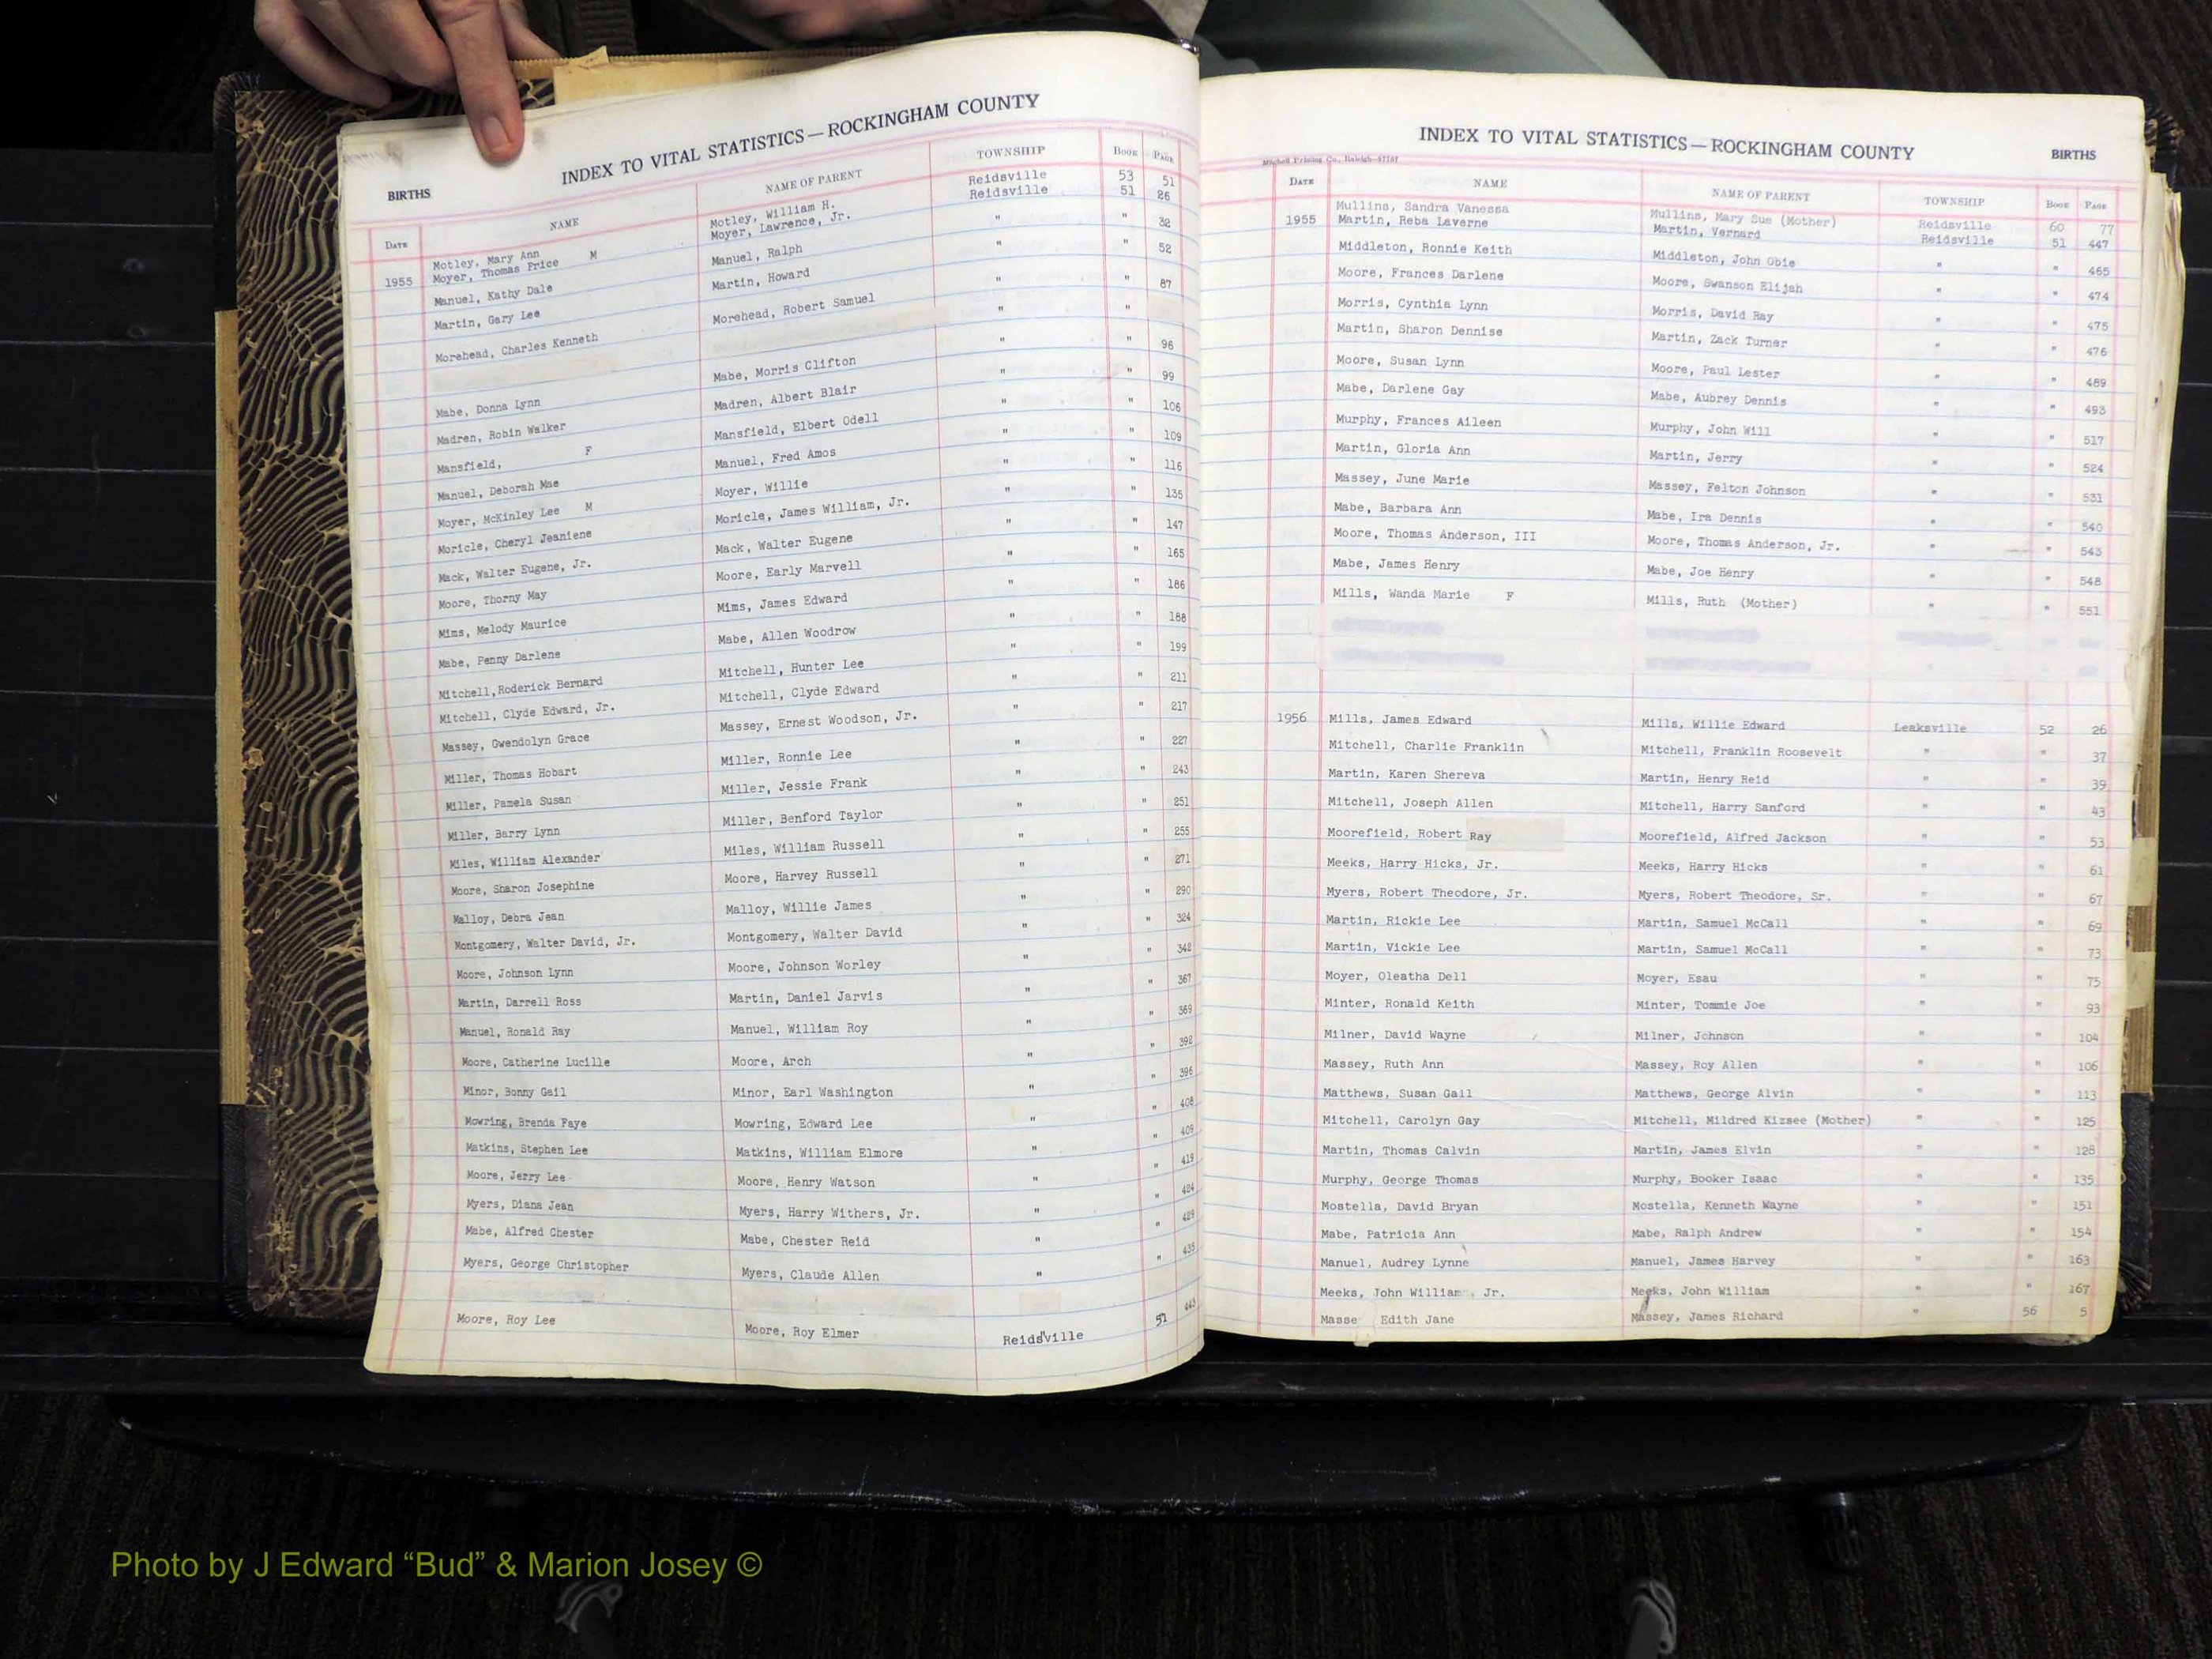 INDEX TO VITAL STATISTICS — ROCKINGHAM COUNTY
BIRTHS
DATE NAME NAME OF PARENT TOWNSHIP BOOK PAGE
Motley, Mary Ann Motley, William H. Reidsville 53 51
1955 Moyer, Thomas Price M Moyer, Lawrence, Jr. Reidsville 51 26
Manuel, Kathy Dale Manuel, Ralph " " 32
Martin, Gary Lee Martin, Howard " " 52
Morehead, Charles Kenneth Morehead, Robert Samuel " " 87
" "
Mabe, Donna Lynn Mabe, Morris Clifton " " 96
Madren, Robin Walker Madren, Albert Blair " " 99
Mansfield, F Mansfield, Elbert Odell " " 106
Manuel, Deborah Mae Manuel, Fred Amos " " 109
Moyer, McKinley Lee M Moyer, Willie " " 116
Moricle, Cheryl Jeaniene Moricle, James William, Jr. " " 135
Mack, Walter Eugene, Jr. Mack, Walter Eugene " " 147
Moore, Thorny May Moore, Early Marvell " " 165
Mims, Melody Maurice Mims, James Edward " " 186
Mabe, Penny Darlene Mabe, Allen Woodrow " " 188
Mitchell,Roderick Bernard Mitchell, Hunter Lee " " 199
Mitchell, Clyde Edward, Jr. Mitchell, Clyde Edward " " 211
Massey, Gwendolyn Grace Massey, Ernest Woodson, Jr. " " 217
Miller, Thomas Hobart Miller, Ronnie Lee " " 227
Miller, Pamela Susan Miller, Jessie Frank " " 243
Miller, Barry Lynn Miller, Benford Taylor " " 251
Miles, William Alexander Miles, William Russell " " 255
Moore, Sharon Josephine Moore, Harvey Russell " " 271
Malloy, Debra Jean Malloy, Willie James " " 290
Montgomery, Walter David, Jr. Montgomery, Walter David " " 324
Moore, Johnson Lynn Moore, Johnson Worley " " 348
Martin, Darrell Ross Martin, Daniel Jarvis " " 367
Manuel, Ronald Ray Manuel, William Roy " " 369
Moore, Catherine Lucille Moore, Arch " " 392
Minor, Bonny Gail Minor, Earl Washington " " 396
Mowring, Brenda Faye Mowring, Edward Lee " " 408
Matkins, Stephen Lee Matkins, William Elmore " " 409
Moore, Jerry Lee Moore, Henry Watson " " 419
Myers, Diana Jean Myers, Harry Withers, Jr. " " 424
Mabe, Alfred Chester Mabe, Chester Reid " " 429
Myers, George Christopher Myers, Claude Allen " " 435
Moore, Roy Lee Moore, Roy Elmer Reidsville 51 443
INDEX TO VITAL STATISTICS — ROCKINGHAM COUNTY
BIRTHS
Mitchell Printing Co., Raleigh
DATE NAME NAME OF PARENT TOWNSHIP BOOK PAGE
Mullins, Sandra Vanessa Mullins, Mary Sue (Mother) Reidsville 60 77
1955 Martin, Reba Laverne Martin, Vernard Reidsville 51 447
Middleton, Ronnie Keith Middleton, John Obie " " 465
Moore, Frances Darlene Moore, Swanson Elijah " " 474
Morris, Cynthia Lynn Morris, David Ray " " 475
Martin, Sharon Dennise Martin, Zack Turner " " 476
Moore, Susan Lynn Moore, Paul Lester " " 489
Mabe, Darlene Gay Mabe, Aubrey Dennis " " 493
Murphy, Frances Aileen Murphy, John Will " " 517
Martin, Gloria Ann Martin, Jerry " " 524
Massey, June Marie Massey, Felton Johnson " " 531
Mabe, Barbara Ann Mabe, Ira Dennis " " 540
Moore, Thomas Anderson, III Moore, Thomas Anderson, Jr. " " 543
Mabe, James Henry Mabe, Joe Henry " " 548
Mills, Wanda Marie F Mills, Ruth (Mother) " " 551
1956 Mills, James Edward Mills, Willie Edward Leaksville 52 26
Mitchell, Charlie Franklin Mitchell, Franklin Roosevelt " " 37
Martin, Karen Shereva Martin, Henry Reid " " 39
Mitchell, Joseph Allen Mitchell, Harry Sanford " " 43
Moorefield, Robert Ray Moorefield, Alfred Jackson " " 53
Meeks, Harry Hicks, Jr. Meeks, Harry Hicks " " 61
Myers, Robert Theodore, Jr. Myers, Robert Theodore, Sr. " " 67
Martin, Rickie Lee Martin, Samuel McCall " " 69
Martin, Vickie Lee Martin, Samuel McCall " " 73
Moyer, Oleatha Dell Moyer, Esau " " 75
Minter, Ronald Keith Minter, Tommie Joe " " 93
Milner, David Wayne Milner, Johnson " " 104
Massey, Ruth Ann Massey, Roy Allen " " 106
Matthews, Susan Gail Matthews, George Alvin " " 113
Mitchell, Carolyn Gay Mitchell, Mildred Kizsee (Mother) " " 125
Martin, Thomas Calvin Martin, James Elvin " " 128
Murphy, George Thomas Murphy, Booker Isaac " " 135
Mostella, David Bryan Mostella, Kenneth Wayne " " 151
Mabe, Patricia Ann Mabe, Ralph Andrew " " 154
Manuel, Audrey Lynne Manuel, James Harvey " " 163
Meeks, John William, Jr. Meeks, John William " " 167
Masse Edith Jane Massey, James Richard " 56 5
Photo by J Edward “Bud” & Marion Josey ©